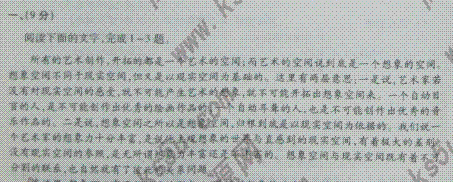 一、(9分)
阅读下面的文字,完成1~3题。
所有的艺术创作,开拓的都是一个艺术的空间;而艺术的空间说到底是一个想象的空间。
想象空间不同于现实空间,但又是以现实空间为基础的。这里有两层意思:一是说,艺术家若
没有对现实空间的感受,就不可能产生艺术的想象,就不可能开拓出想象空间来。一个自幼目
盲的人,是不可能创作出优秀的绘画作品的;一个自幼耳聋的人,也是不可能创作出优秀的音
乐作品的。二是说,想象空间之所以是想象空间,归根到底是以现实空间为依据的。我们说一
个艺术家的想象力十分丰富,是说他表现想象的世界与直感到的现实空间,有着极大的差别,
没有现实空间的参照,是无所谓想象力丰富还是不丰富的。想象空间与现实空间既有着不可
分割的联系,也自然就有了彼此的关系问题。